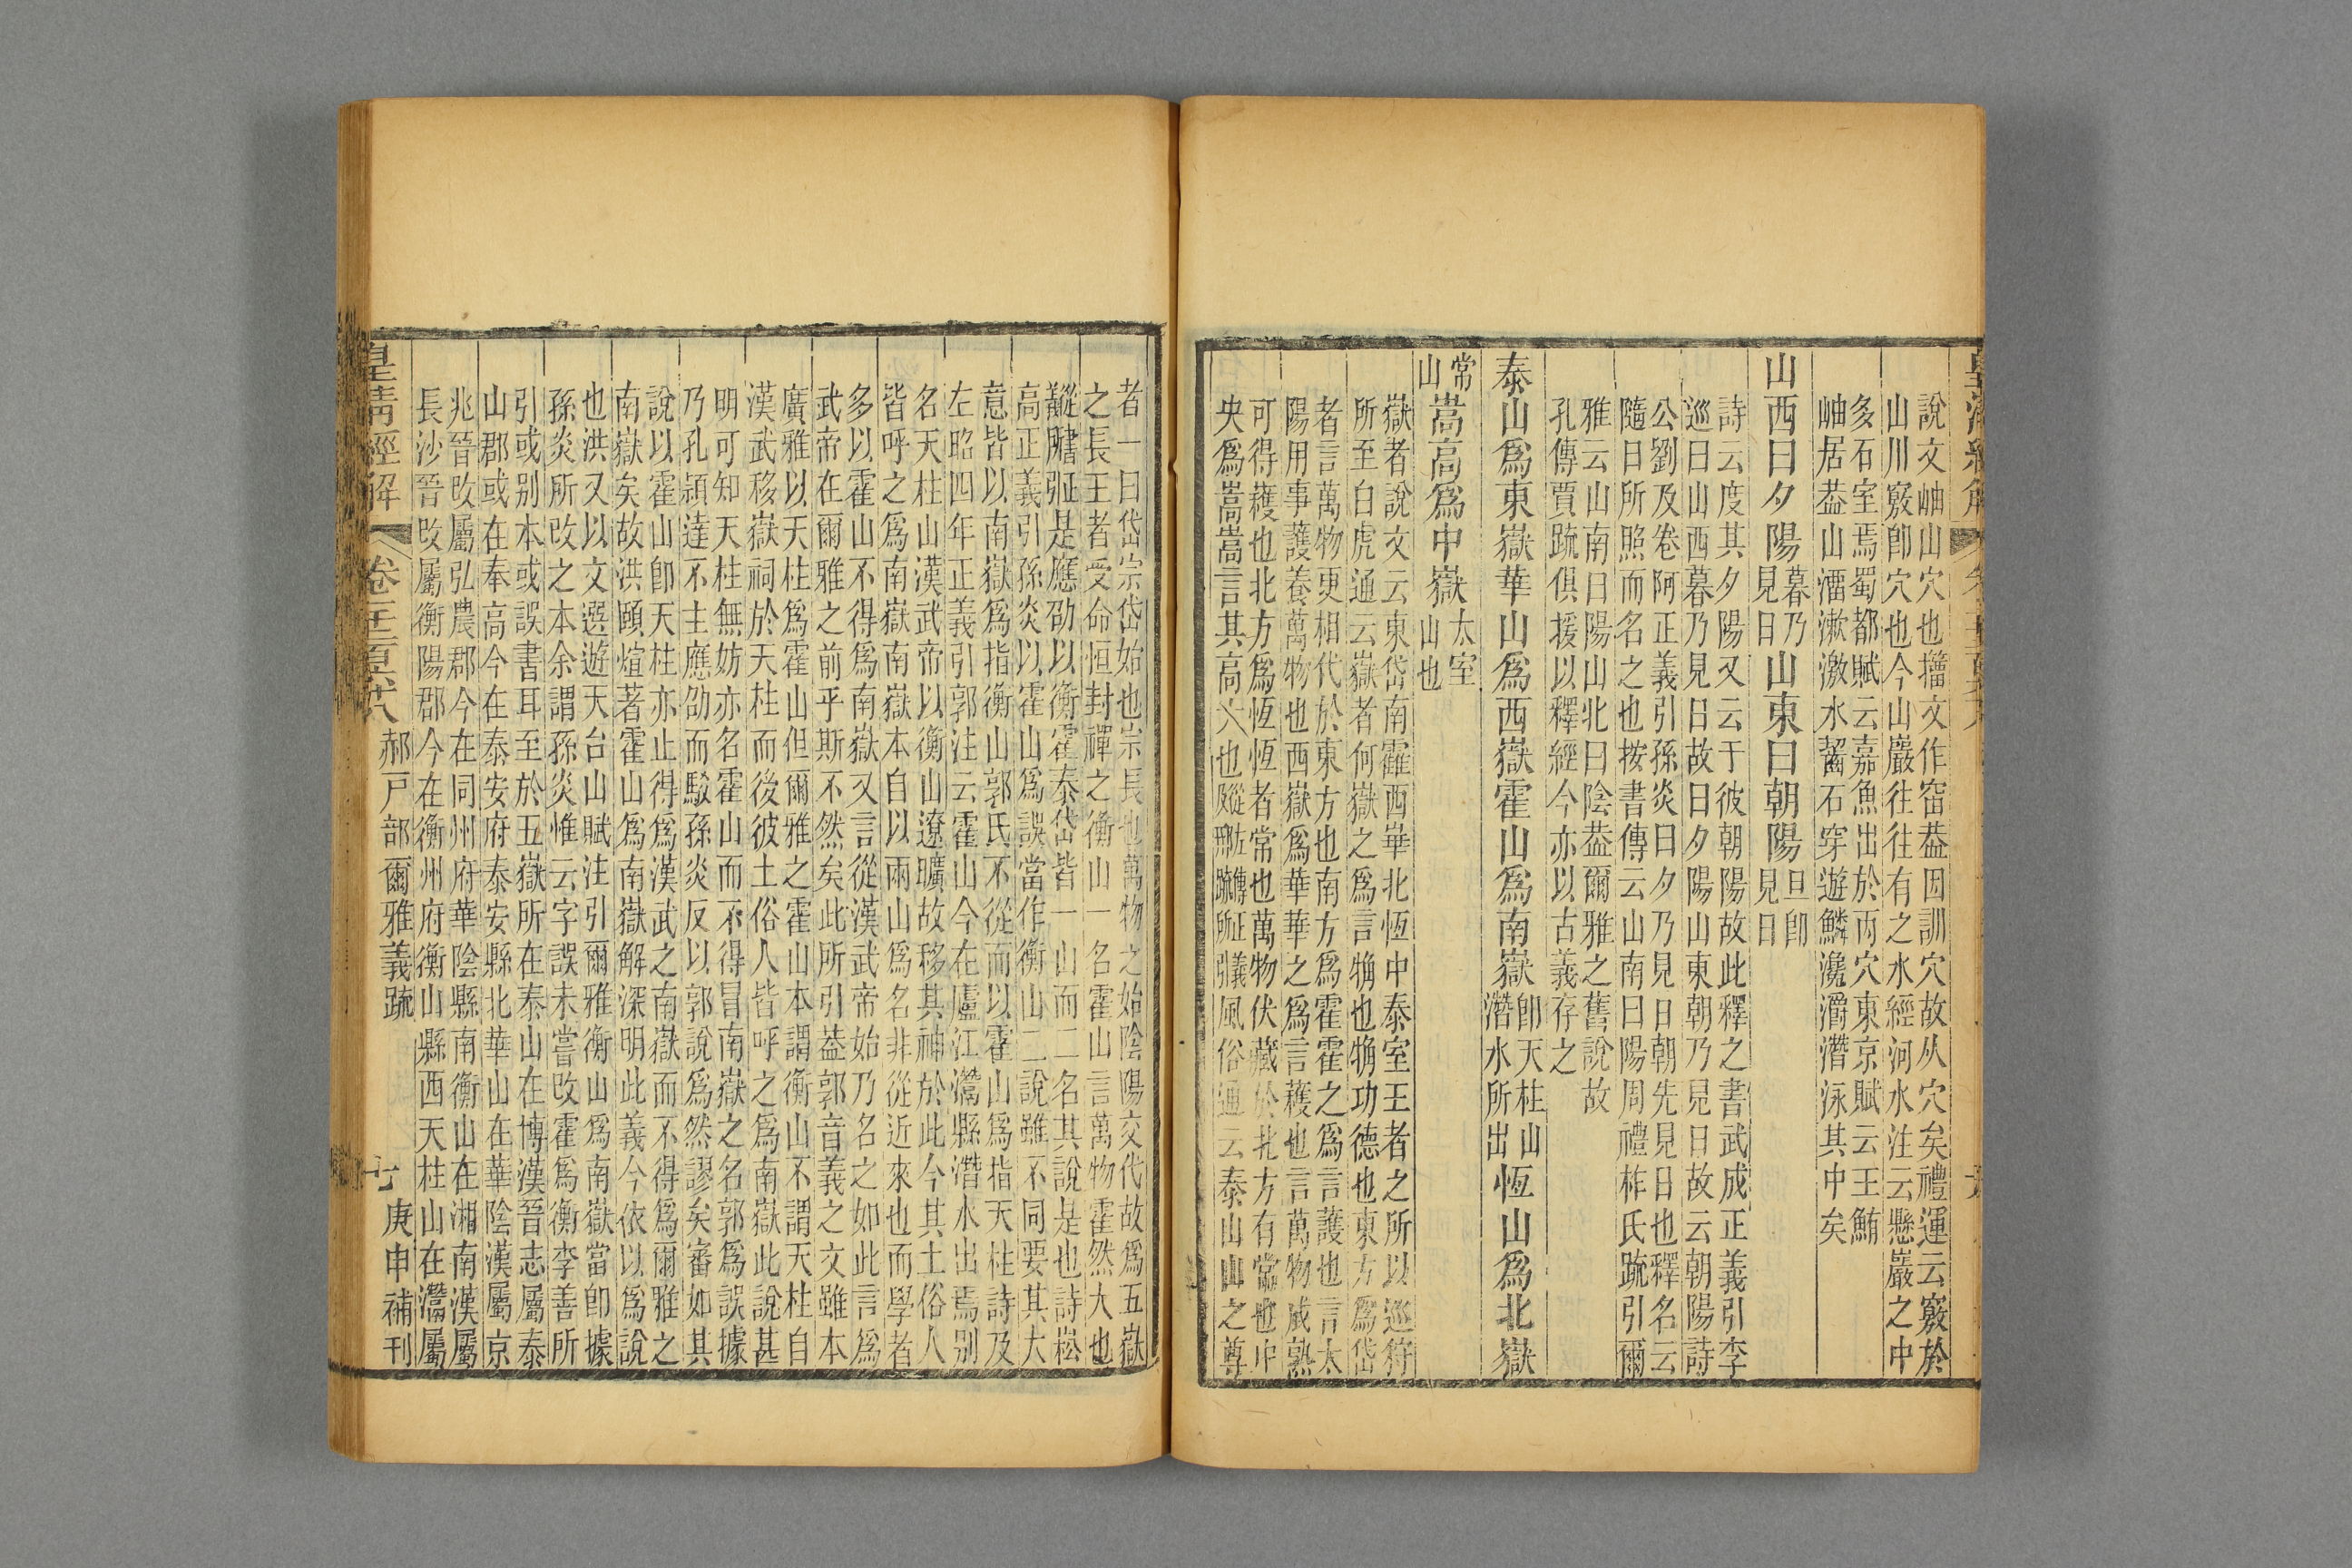 說文岫山穴也籀文作窅葢因訓穴故从穴矣禮運云竅於
山川竅卽穴也今山巖往往有之水經河水注云懸巖之中
多石室焉蜀都賦云嘉魚出於丙穴東京賦云王鮪
岫居葢山㵽漱激水齧石穿遊鱗瀺灂潛泳其中矣
山西曰夕陽暮乃見日山東曰朝陽旦卽見日
詩云度其夕陽又云于彼朝陽故此釋之書武成正義引李
巡曰山西暮乃見日故曰夕陽山東朝乃見日故云朝陽詩
公劉及卷阿正義引孫炎曰夕乃見日朝先見日也釋名云
隨日所照而名之也按書傳云山南曰陽周禮柞氏䟽引爾
雅云山南曰陽山北曰陰葢爾雅之舊說故
孔傳賈䟽俱援以釋經今亦以古義存之
泰山爲東嶽華山爲西嶽霍山爲南嶽卽天柱山潛水所出恆山爲北嶽
常山嵩高爲中嶽太室山也
嶽者說文云東岱南靃西崋北恆中泰室王者之所以巡狩
所至白虎通云嶽者何嶽之爲言觕也觕功德也東方爲岱
者言萬物更相代於東方也南方爲霍霍之爲言護也言太
陽用事護養萬物也西嶽爲華華之爲言穫也言萬物成熟
可得穫也北方爲恆恆者常也萬物伏藏於北方有常也中
央爲嵩嵩言其高大也風俗通云泰山山之尊
者一曰岱宗岱始也宗長也萬物之始陰陽交代故爲五嶽
之長王者受命恒封禪之衡山一名霍山言萬物霍然大也
是應劭以衡霍泰岱皆一山而二名其說是也詩崧
高正義引孫炎以霍山爲誤當作衡山二說雖不同要其大
意皆以南嶽爲指衡山郭氏不從而以霍山爲指天柱詩及
左昭四年正義引郭注云霍山今在廬江灊縣潛水出焉别
名天柱山漢武帝以衡山遼曠故移其神於此今其土俗人
皆呼之爲南嶽南嶽本自以兩山爲名非從近來也而學者
多以霍山不得爲南嶽又言從漢武帝始乃名之如此言爲
武帝在爾雅之前乎斯不然矣此所引葢郭音義之文雖本
廣雅以天柱爲霍山但爾雅之霍山本謂衡山不謂天柱自
漢武移嶽祠於天柱而後彼土俗人皆呼之爲南嶽此說甚
明可知天柱無妨亦名霍山而不得冒南嶽之名郭爲誤據
乃孔頴達不主應劭而駁孫炎反以郭說爲然謬矣審如其
說以霍山卽天柱亦止得爲漢武之南嶽而不得爲爾雅之
南嶽矣故洪頤煊著霍山爲南嶽解深明此義今依以爲說
也洪又以文選遊天台山賦注引爾雅衡山爲南嶽當卽據
孫炎所攺之本余謂孫炎惟云字誤未嘗攺霍爲衡李善所
引或别本或誤書耳至於五嶽所在泰山在博漢晉志屬泰
山郡或在奉高今在泰安府泰安縣北華山在華陰漢屬京
兆晉攺屬弘農郡今在同州府華陰縣南衡山在湘南漢屬
長沙晉攺屬衡陽郡今在衡州府衡山縣西天柱山在灊屬
皇清經解 卷二百六十八 郝戸部爾雅義䟽 七 庚申補刊